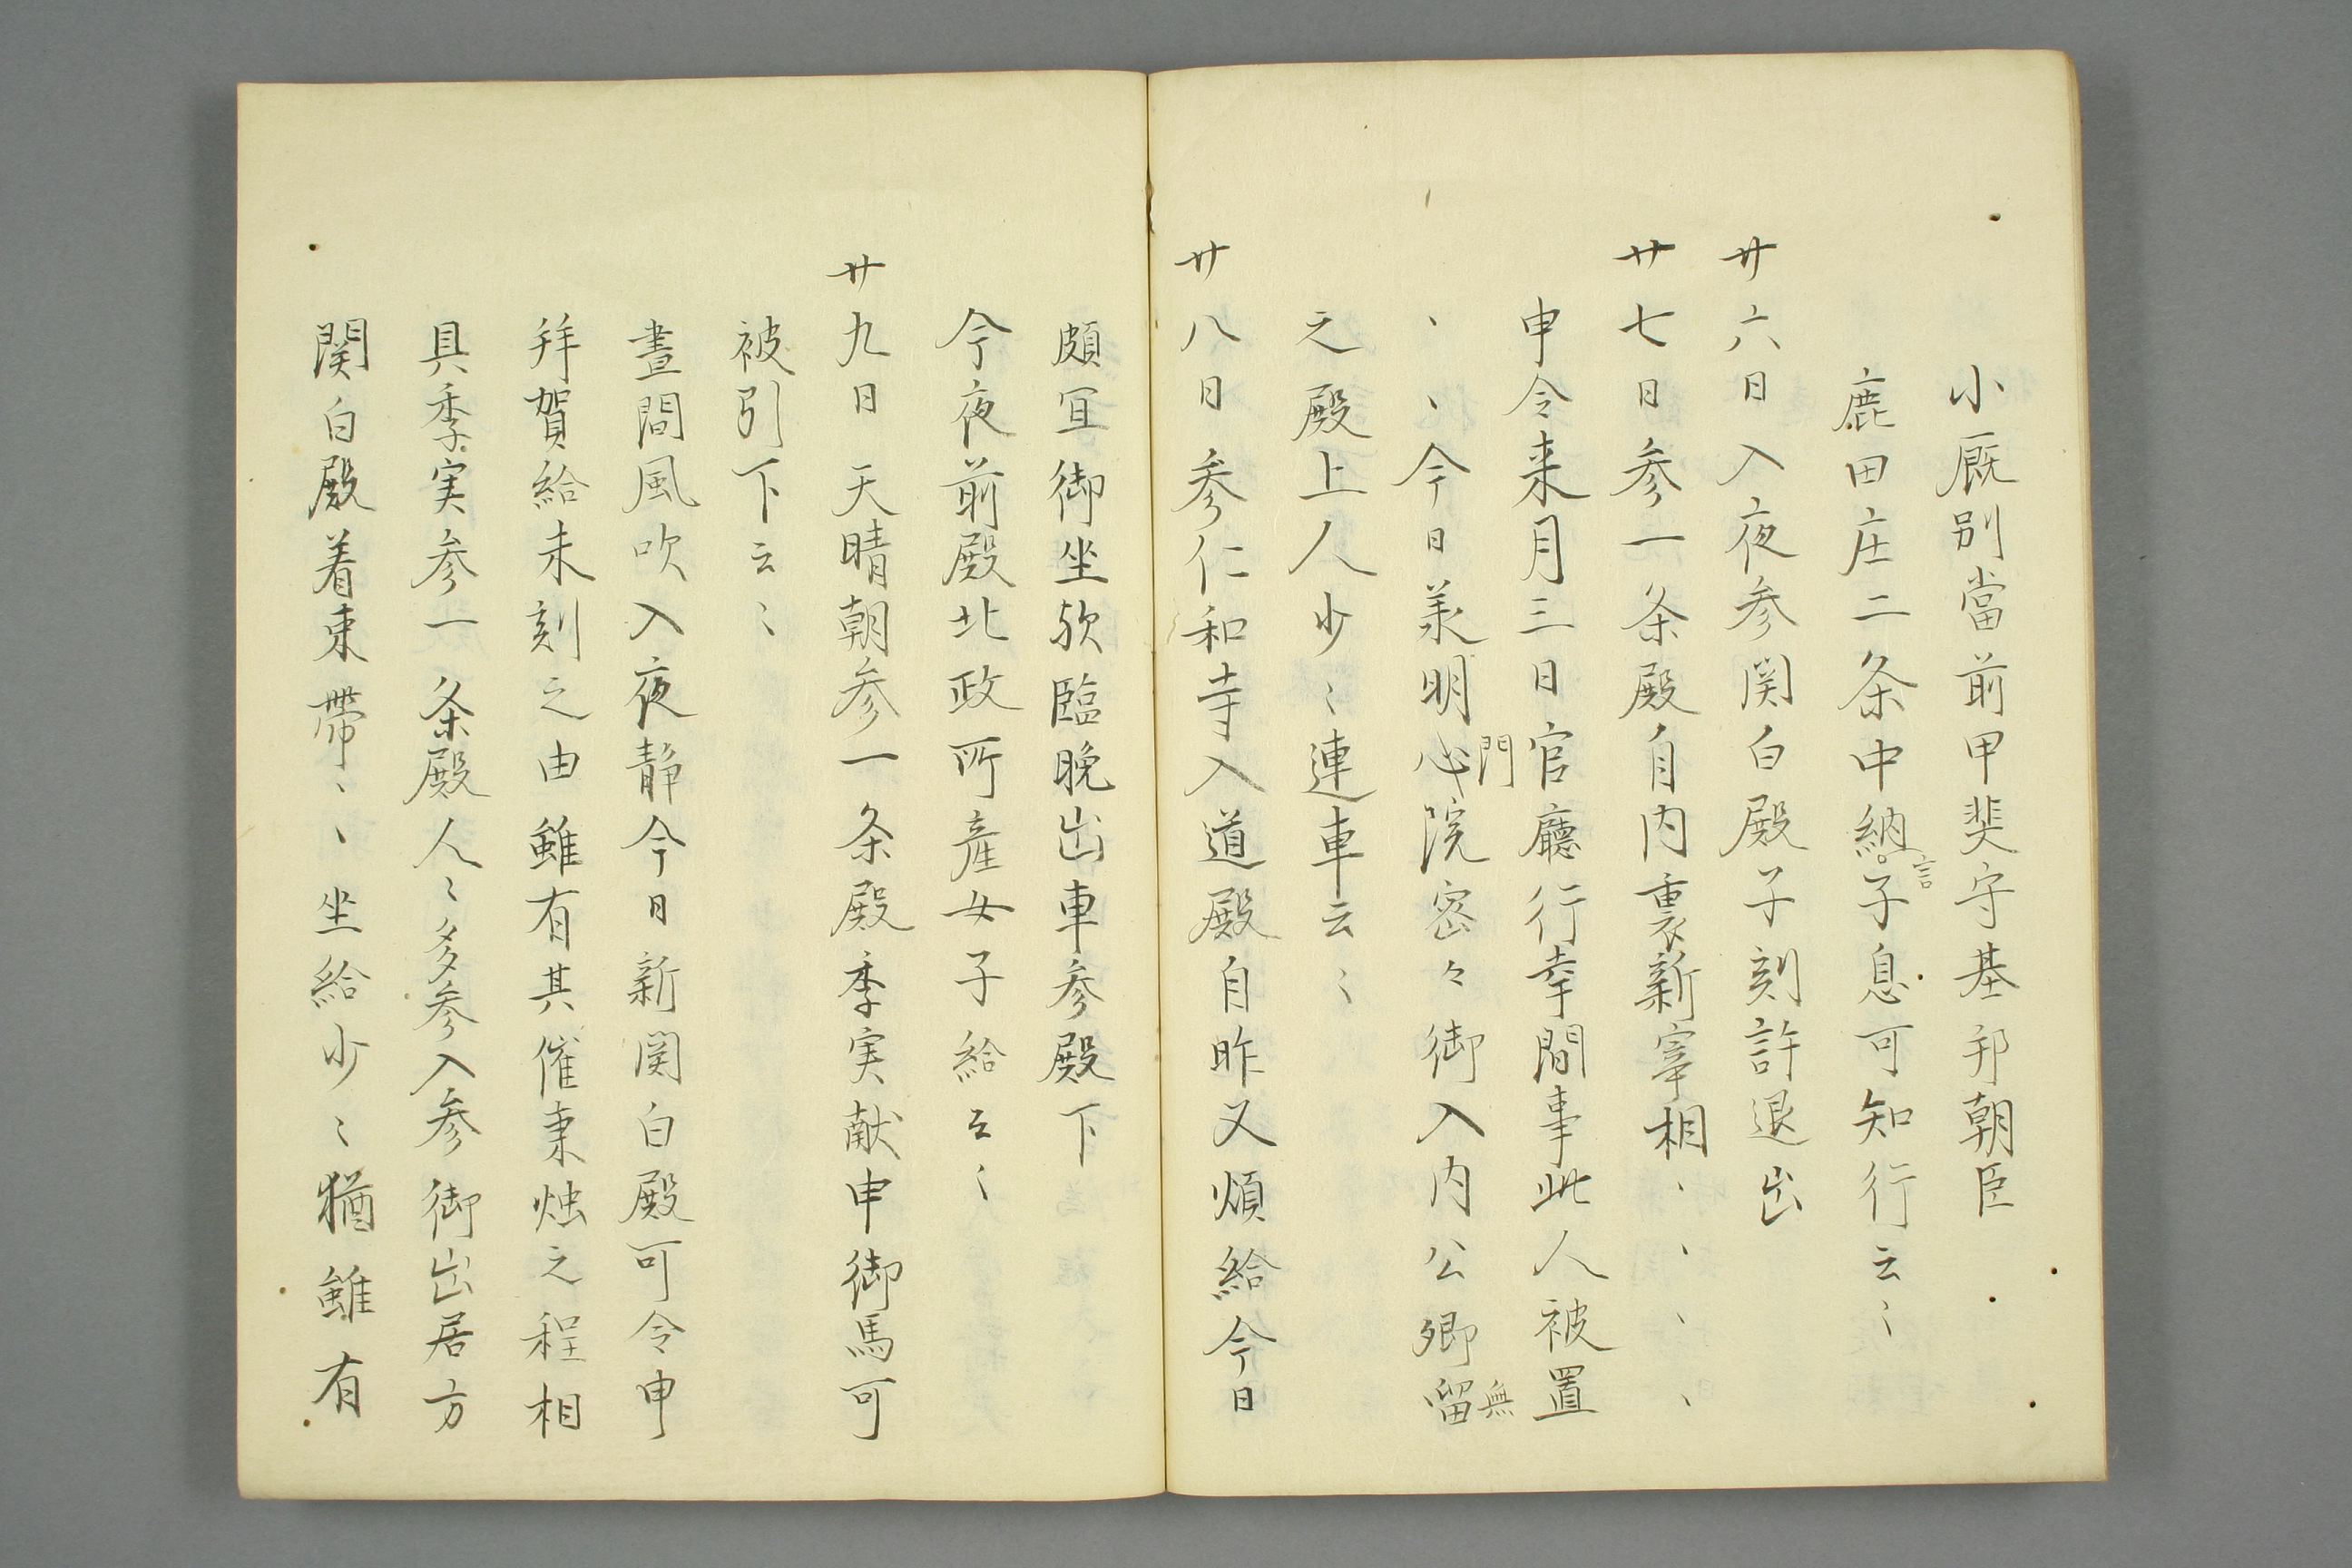 小厩別當前甲斐守基邦朝臣
鹿田庄二条中納言子息可知行云〻
廿六日入夜参関白殿子刻許退出
廿七日参一条殿自内裏新宰相、、、、
申令来月三日官廳行幸間事此人被置
、、今日兼明心門院密々御入内公卿留無
之殿上人少〻連車云〻
廿八日参仁和寺入道殿自昨又煩給今日
頗宜御坐欤臨晩出車参殿下
今夜前殿北政所産女子給云〻
廿九日天晴朝参一条殿季実献申御馬可
被引下云〻
晝間風吹入夜静今日新関白殿可令申
拜賀給未刻之由雖有其催秉燭之程相
具季実参一条殿人〻多参入参御出居方
関白殿着束帯、、坐給少〻猶雖有